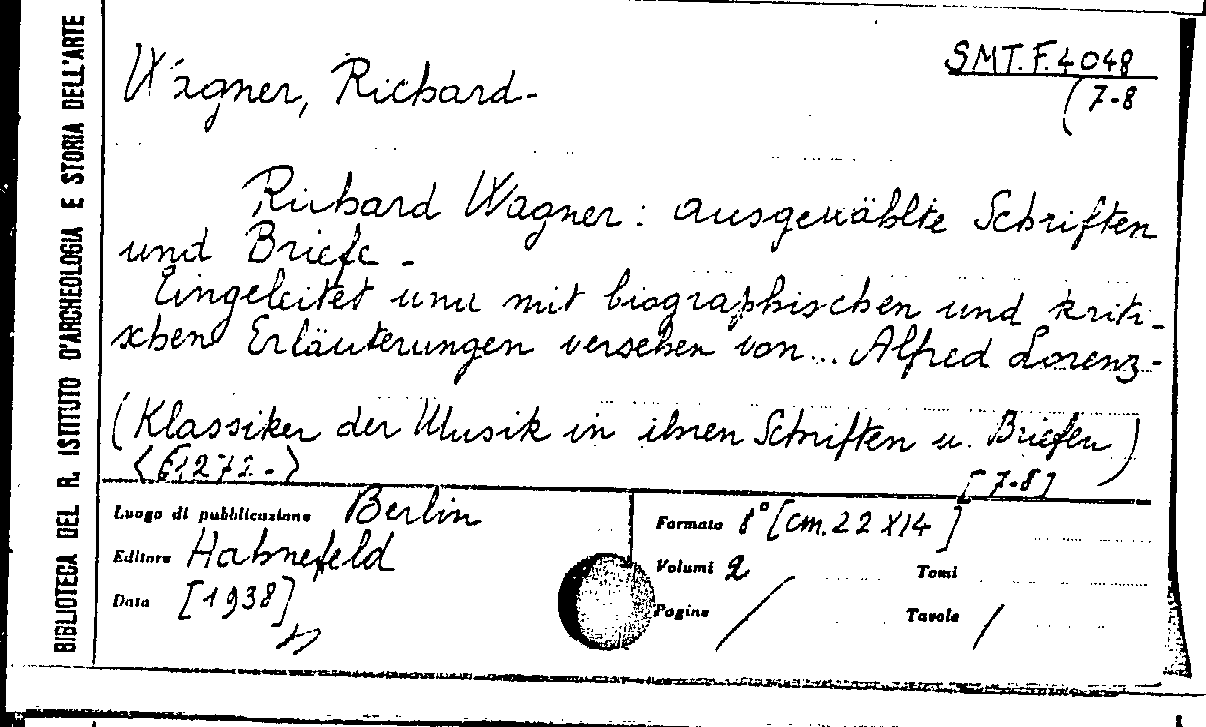 BIBLIOTECA DEL R. ISTITUTO D'ARCHEOLOGIA E STORIA DELL'ARTE
SMT.F.4048
(7-8
Wagner, Richard-
Richard Wagner: ausgewählte Schriften
und Briefe -
Eingeleitet und mit biographischen und kriti-
schen Erläuterungen versehen von... Alfred Lorenz-
(Klassiker der Musik in ihren Schriften u. Briefen)
<61272-> [7-8]
Luogo di pubblicazione Berlin
Editore Hahnefeld
Data [1938]
Formato 8° [cm. 22 X14]
Volumi 2 Tomi
Pagine / Tavole /